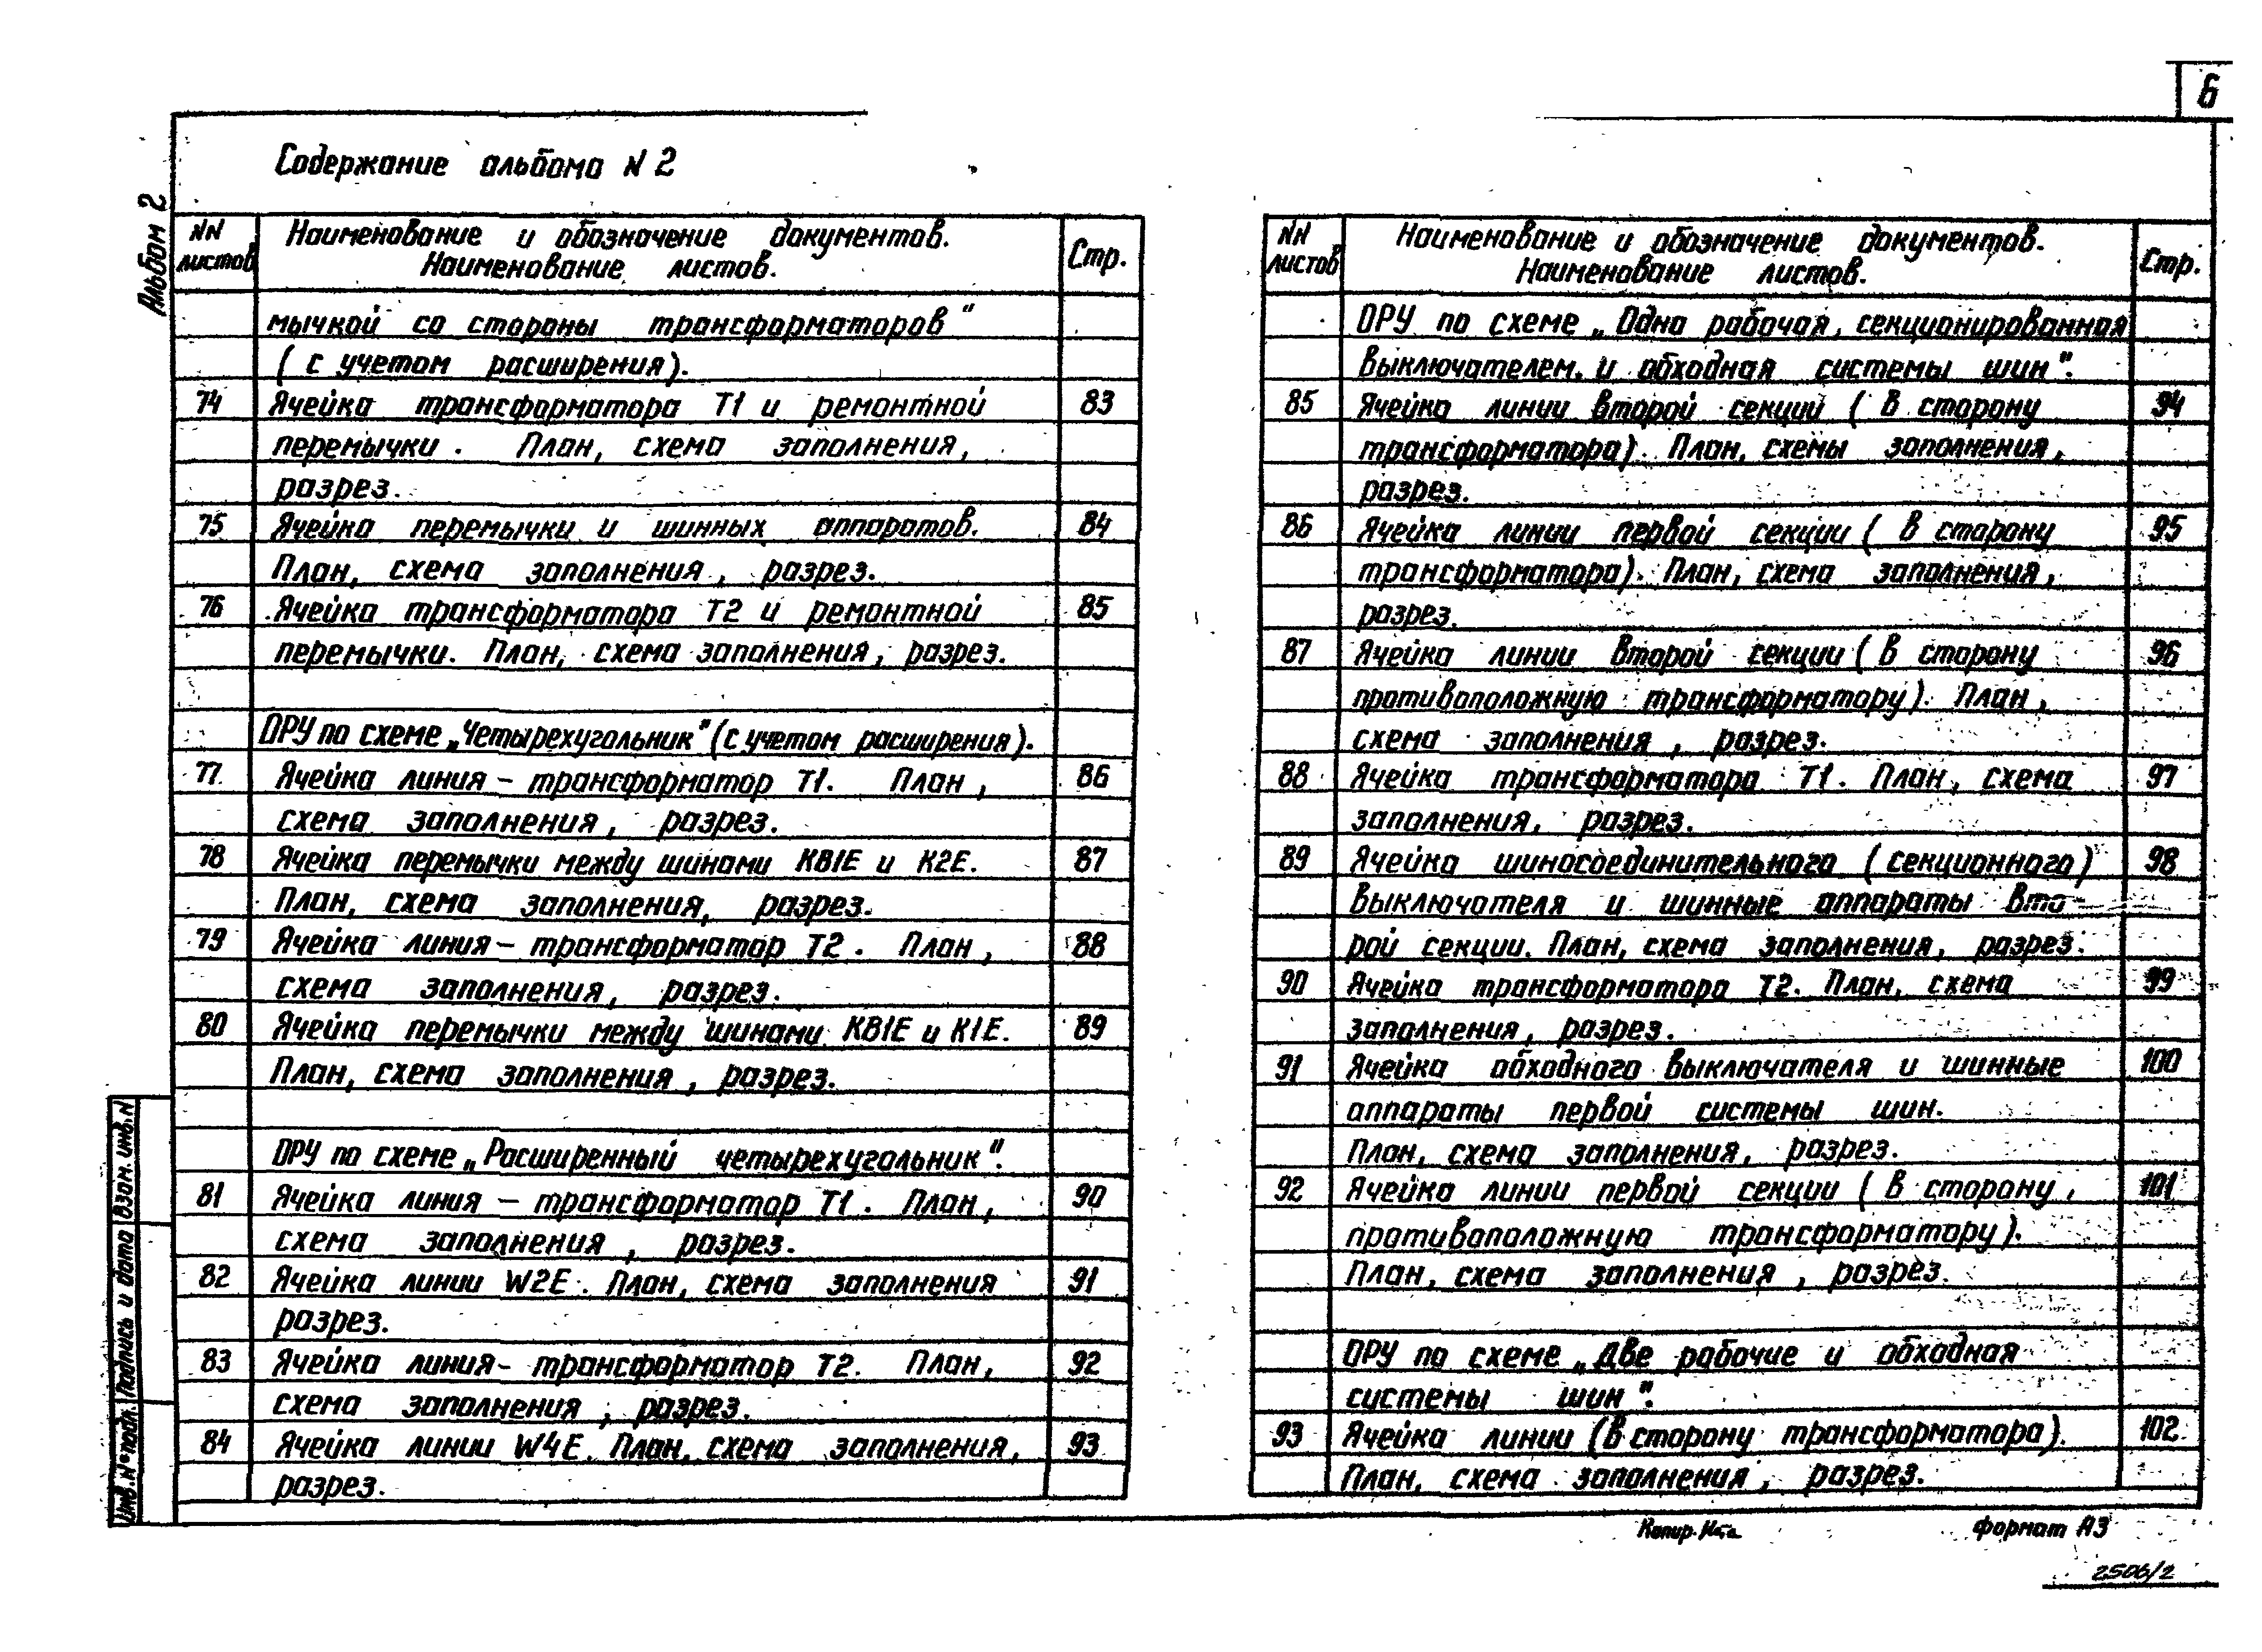 6
Содержание альбома N 2
Альбом 2
NN листов
Наименование и обозначение документов.
Наименование листов.
Стр.
мычкой со стороны трансформаторов"
(с учетом расширения).
74 Ячейка трансформатора Т1 и ремонтной 83
перемычки. План, схема заполнения,
разрез.
75 Ячейка перемычки и шинных аппаратов. 84
План, схема заполнения, разрез.
76 Ячейка трансформатора Т2 и ремонтной 85
перемычки. План, схема заполнения, разрез.
ОРУ по схеме „Четырехугольник" (с учетом расширения).
77 Ячейка линия – трансформатор Т1. План, 86
схема заполнения, разрез.
78 Ячейка перемычки между шинами КВ1Е и К2Е. 87
План, схема заполнения, разрез.
79 Ячейка линия – трансформатор Т2. План, 88
схема заполнения, разрез.
80 Ячейка перемычки между шинами КВ1Е и К1Е. 89
План, схема заполнения, разрез.
ОРУ по схеме „Расширенный четырехугольник".
81 Ячейка линия – трансформатор Т1. План, 90
схема заполнения, разрез.
82 Ячейка линии W2E. План, схема заполнения 91
разрез.
83 Ячейка линия – трансформатор Т2. План, 92
схема заполнения, разрез.
84 Ячейка линии W4E. План, схема заполнения, 93
разрез.
NN листов
Наименование и обозначение документов.
Наименование листов.
Стр.
ОРУ по схеме „Одна рабочая, секционированная
выключателем, и обходная системы шин".
85 Ячейка линии второй секции (в сторону 94
трансформатора). План, схемы заполнения,
разрез.
86 Ячейка линии первой секции (в сторону 95
трансформатора). План, схема заполнения,
разрез.
87 Ячейка линии второй секции (в сторону 96
противоположную трансформатору). План,
схема заполнения, разрез.
88 Ячейка трансформатора Т1. План, схема 97
заполнения, разрез.
89 Ячейка шиносоединительного (секционного) 98
выключателя и шинные аппараты вто-
рой секции. План, схема заполнения, разрез.
90 Ячейка трансформатора Т2. План, схема 99
заполнения, разрез.
91 Ячейка обходного выключателя и шинные 100
аппараты первой системы шин.
План, схема заполнения, разрез.
92 Ячейка линии первой секции (в сторону, 101
противоположную трансформатору).
План, схема заполнения, разрез.
ОРУ по схеме „Две рабочие и обходная
системы шин".
93 Ячейка линии (в сторону трансформатора). 102
План, схема заполнения, разрез.
Инв.N°подл. Подпись и дата Взам. инв.N
Копир.
формат А3
2506/2